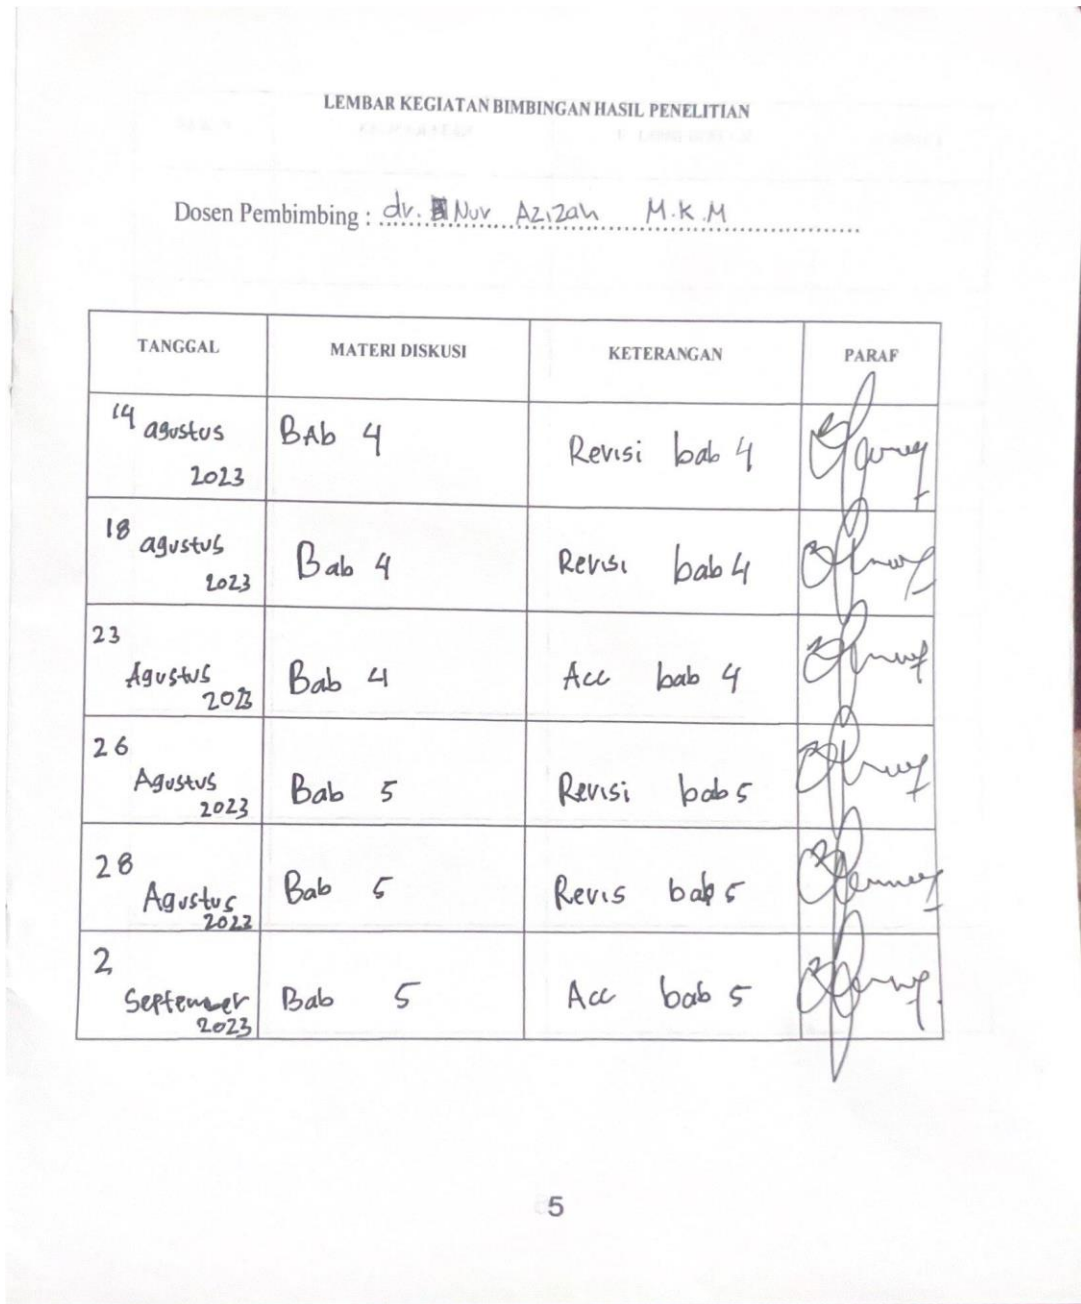 LEMBAR KEGIATAN BIMBINGAN HASIL PENELITIAN
Dosen Pembimbing : dr. Nur Azizah M.K.M
TANGGAL MATERI DISKUSI KETERANGAN PARAF
14 agustus 2023 BAb 4 Revisi bab 4
18 agustus 2023 Bab 4 Revisi bab 4
23 Agustus 2023 Bab 4 Acc bab 4
26 Agustus 2023 Bab 5 Revisi bab 5
28 Agustus 2023 Bab 5 Revis bab 5
2 September 2023 Bab 5 Acc bab 5
5